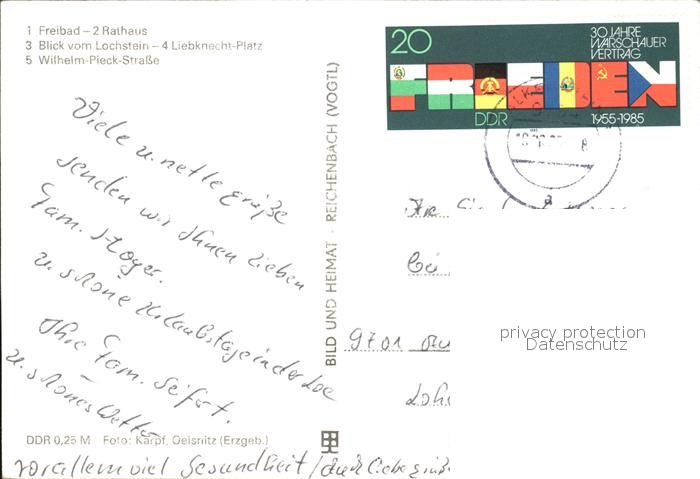 1 Freibad – 2 Rathaus
3 Blick vom Lochstein – 4 Liebknecht-Platz
5 Wilhelm-Pieck-Straße
20
30 JAHRE
WARSCHAUER
VERTRAG
FRIEDEN
DDR
1955-1985
BILD UND HEIMAT · REICHENBACH (VOGTL)
Viele u. nette Grüße
senden wir Ihnen lieben
Fam.
u. schöne Urlaubstage in der
Ihre Fam. Seifert.
u. schönes Wetter
vor allem viel Gesundheit /
9701
privacy protection
Datenschutz
DDR 0,25 M Foto: Karpf, Oelsnitz (Erzgeb.)